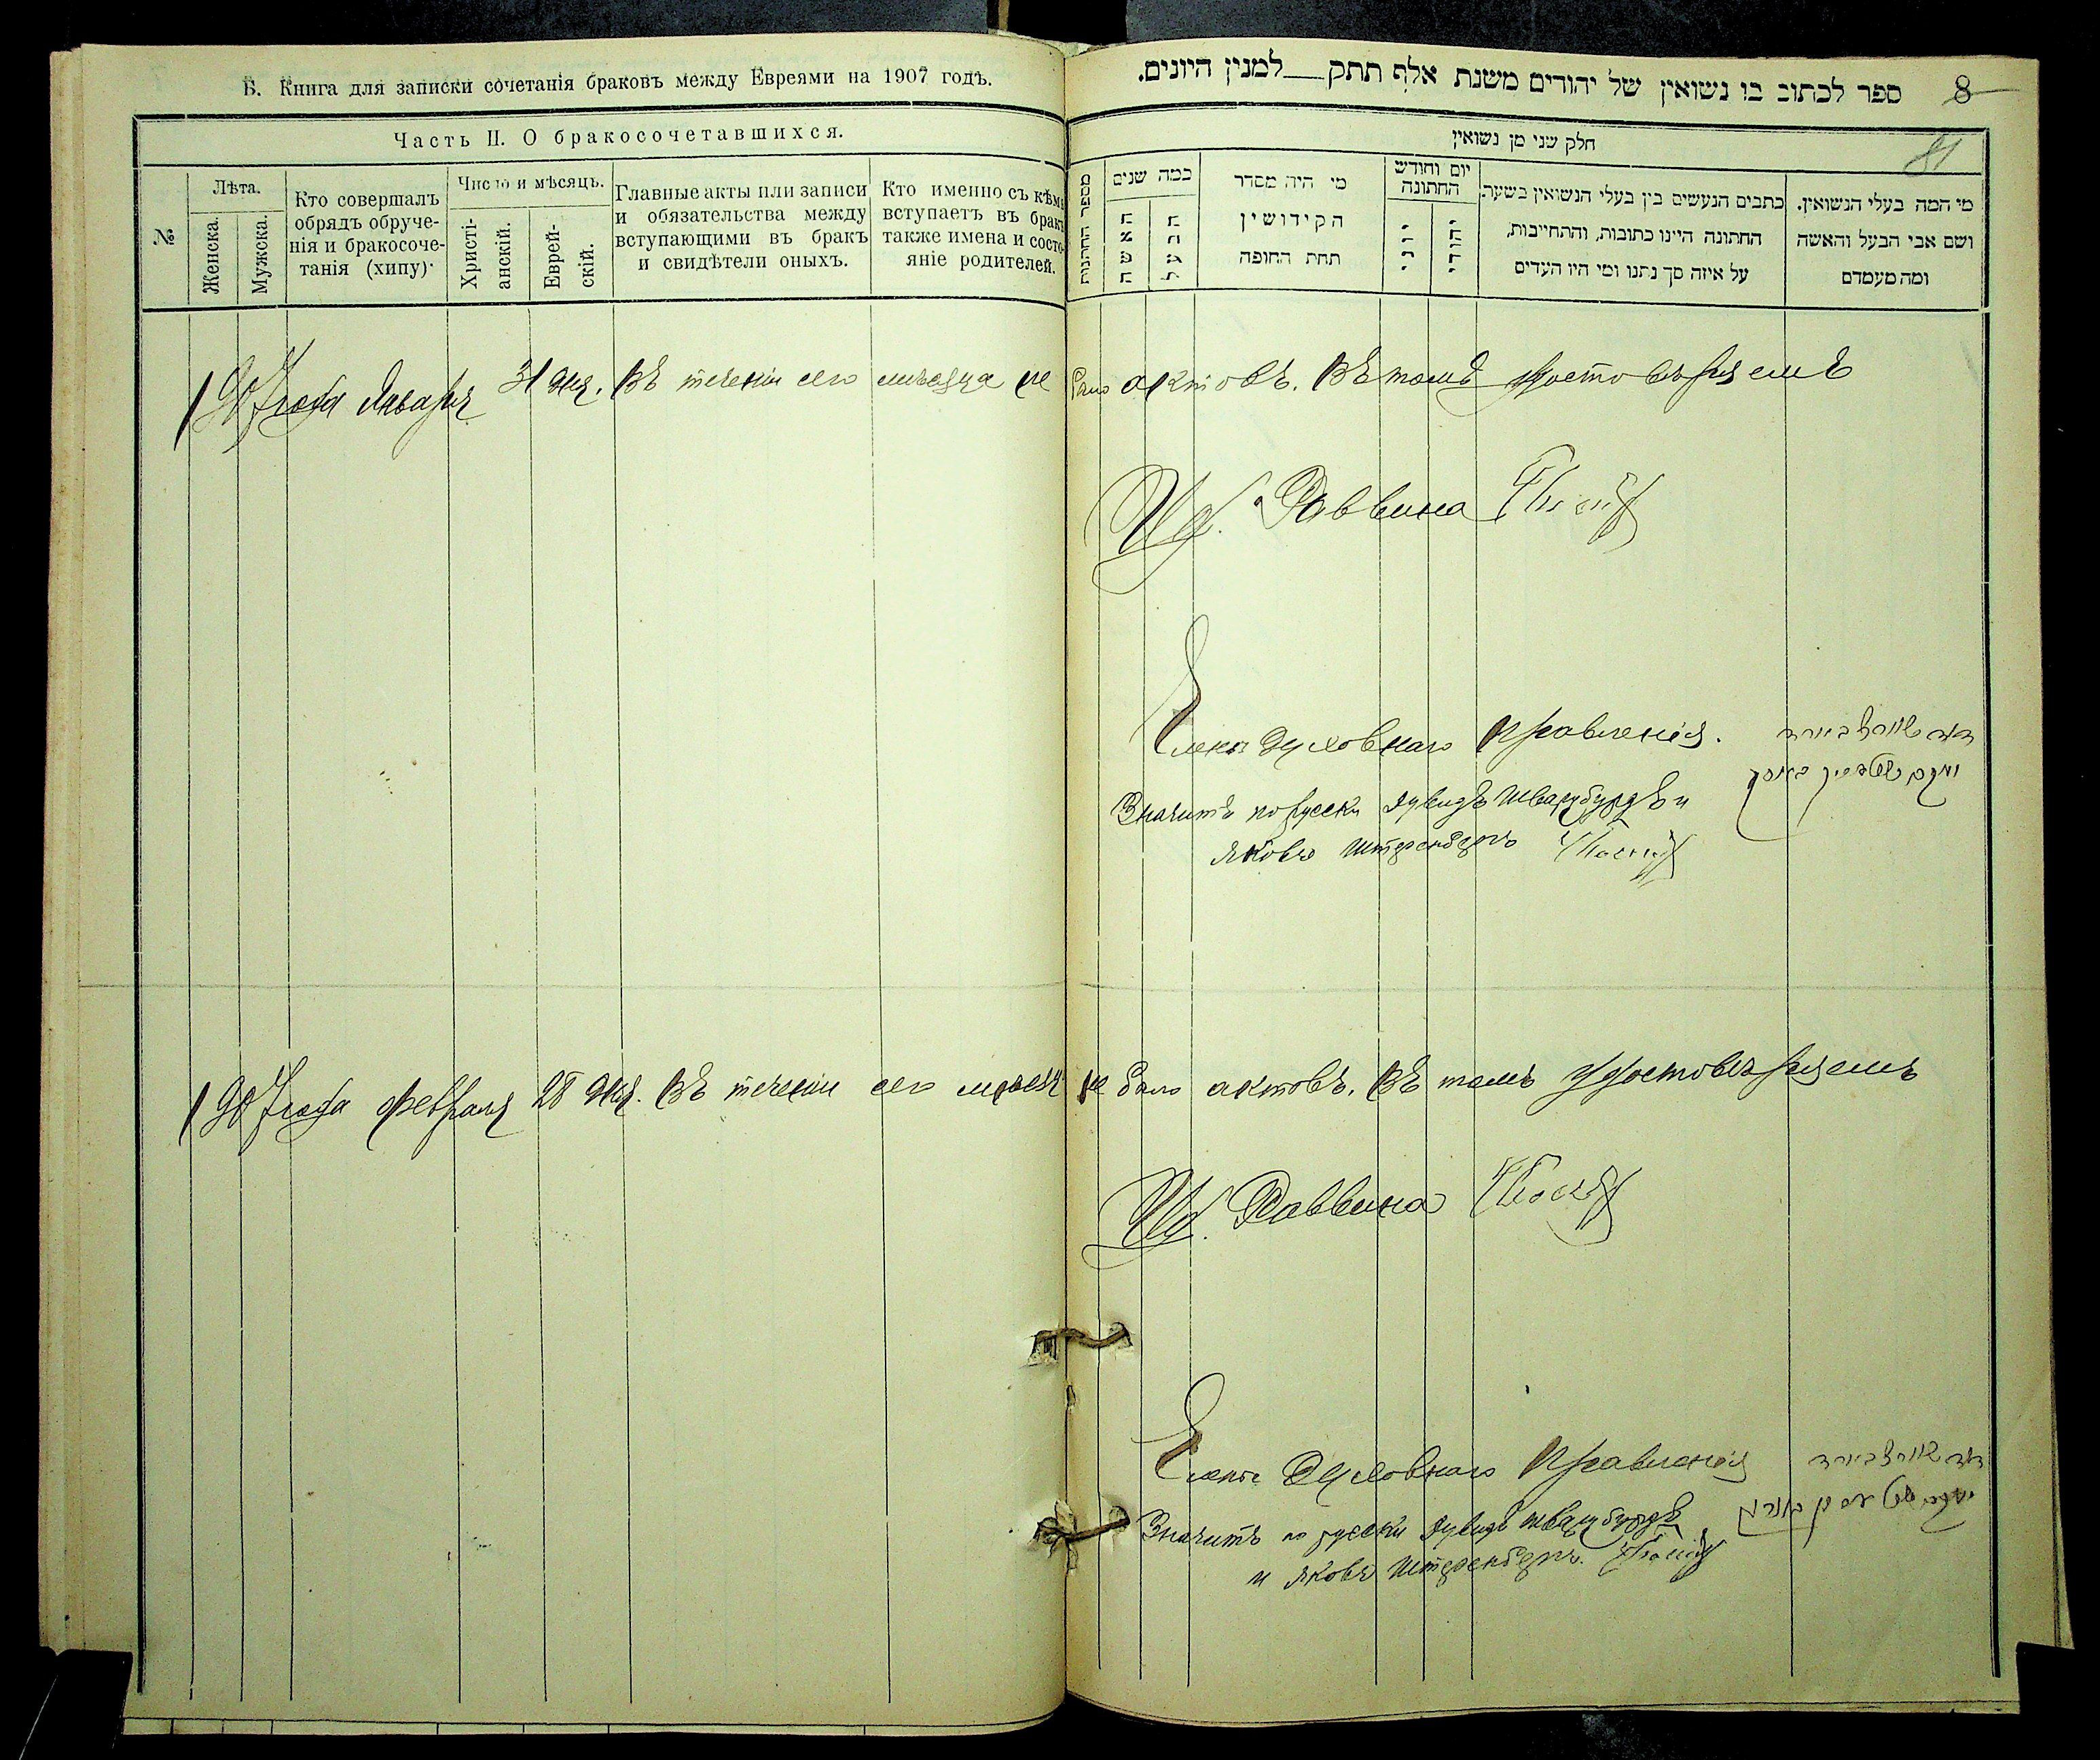 Б. Книга для записки сочетанія браковъ между Евреями на 1907 годъ.
Часть II. О бракосочетавшихся.
№
Лѣта.
Женска.
Мужска.
Кто совершалъ
обрядъ обруче-
нія и бракосоче-
танія (хипу)
Число и мѣсяцъ.
Христі-
анскій.
Еврей-
скій.
Главные акты или записи
и обязательства между
вступающими въ бракъ
и свидѣтели оныхъ.
Кто именно съ кѣмъ
вступаетъ въ бракъ
также имена и состо-
яніе родителей.
ספר לכתוב בו נשואין של יהודים משנת אלף תתק למנין היונים.
8
81
חלק שני מן נשואין
מספר החתונות
כמה שנים
האשה
הבעל
מי היה מסדר
הקידושין
תחת החופה
יום וחודש
החתונה
יוני
יהודי
כתבים הנעשים בין בעלי הנשואין בשער.
החתונה היינו כתובות, והתחייבות,
על איזה סך נתנו ומי היו העדים
מי המה בעלי הנשואין.
ושם אבי הבעל והאשה
ומה מעמדם
1907 года Января 31 дня. Въ теченіи сего мѣсяца не было актовъ. Въ томъ удостовѣряемъ
И. д. Раввина
Члены Духовнаго Правленія.
Значитъ по русски Дувидъ Шварцбурдъ и
Яковъ Штеренбергъ
1907 года Февраля 28 дня. Въ теченіи сего мѣсяца не было актовъ. Въ томъ удостовѣряемъ
И. д. Раввина
Члены Духовнаго Правленія
Значитъ по русски Дувидъ Шварцбурдъ
и Яковъ Штеренбергъ.